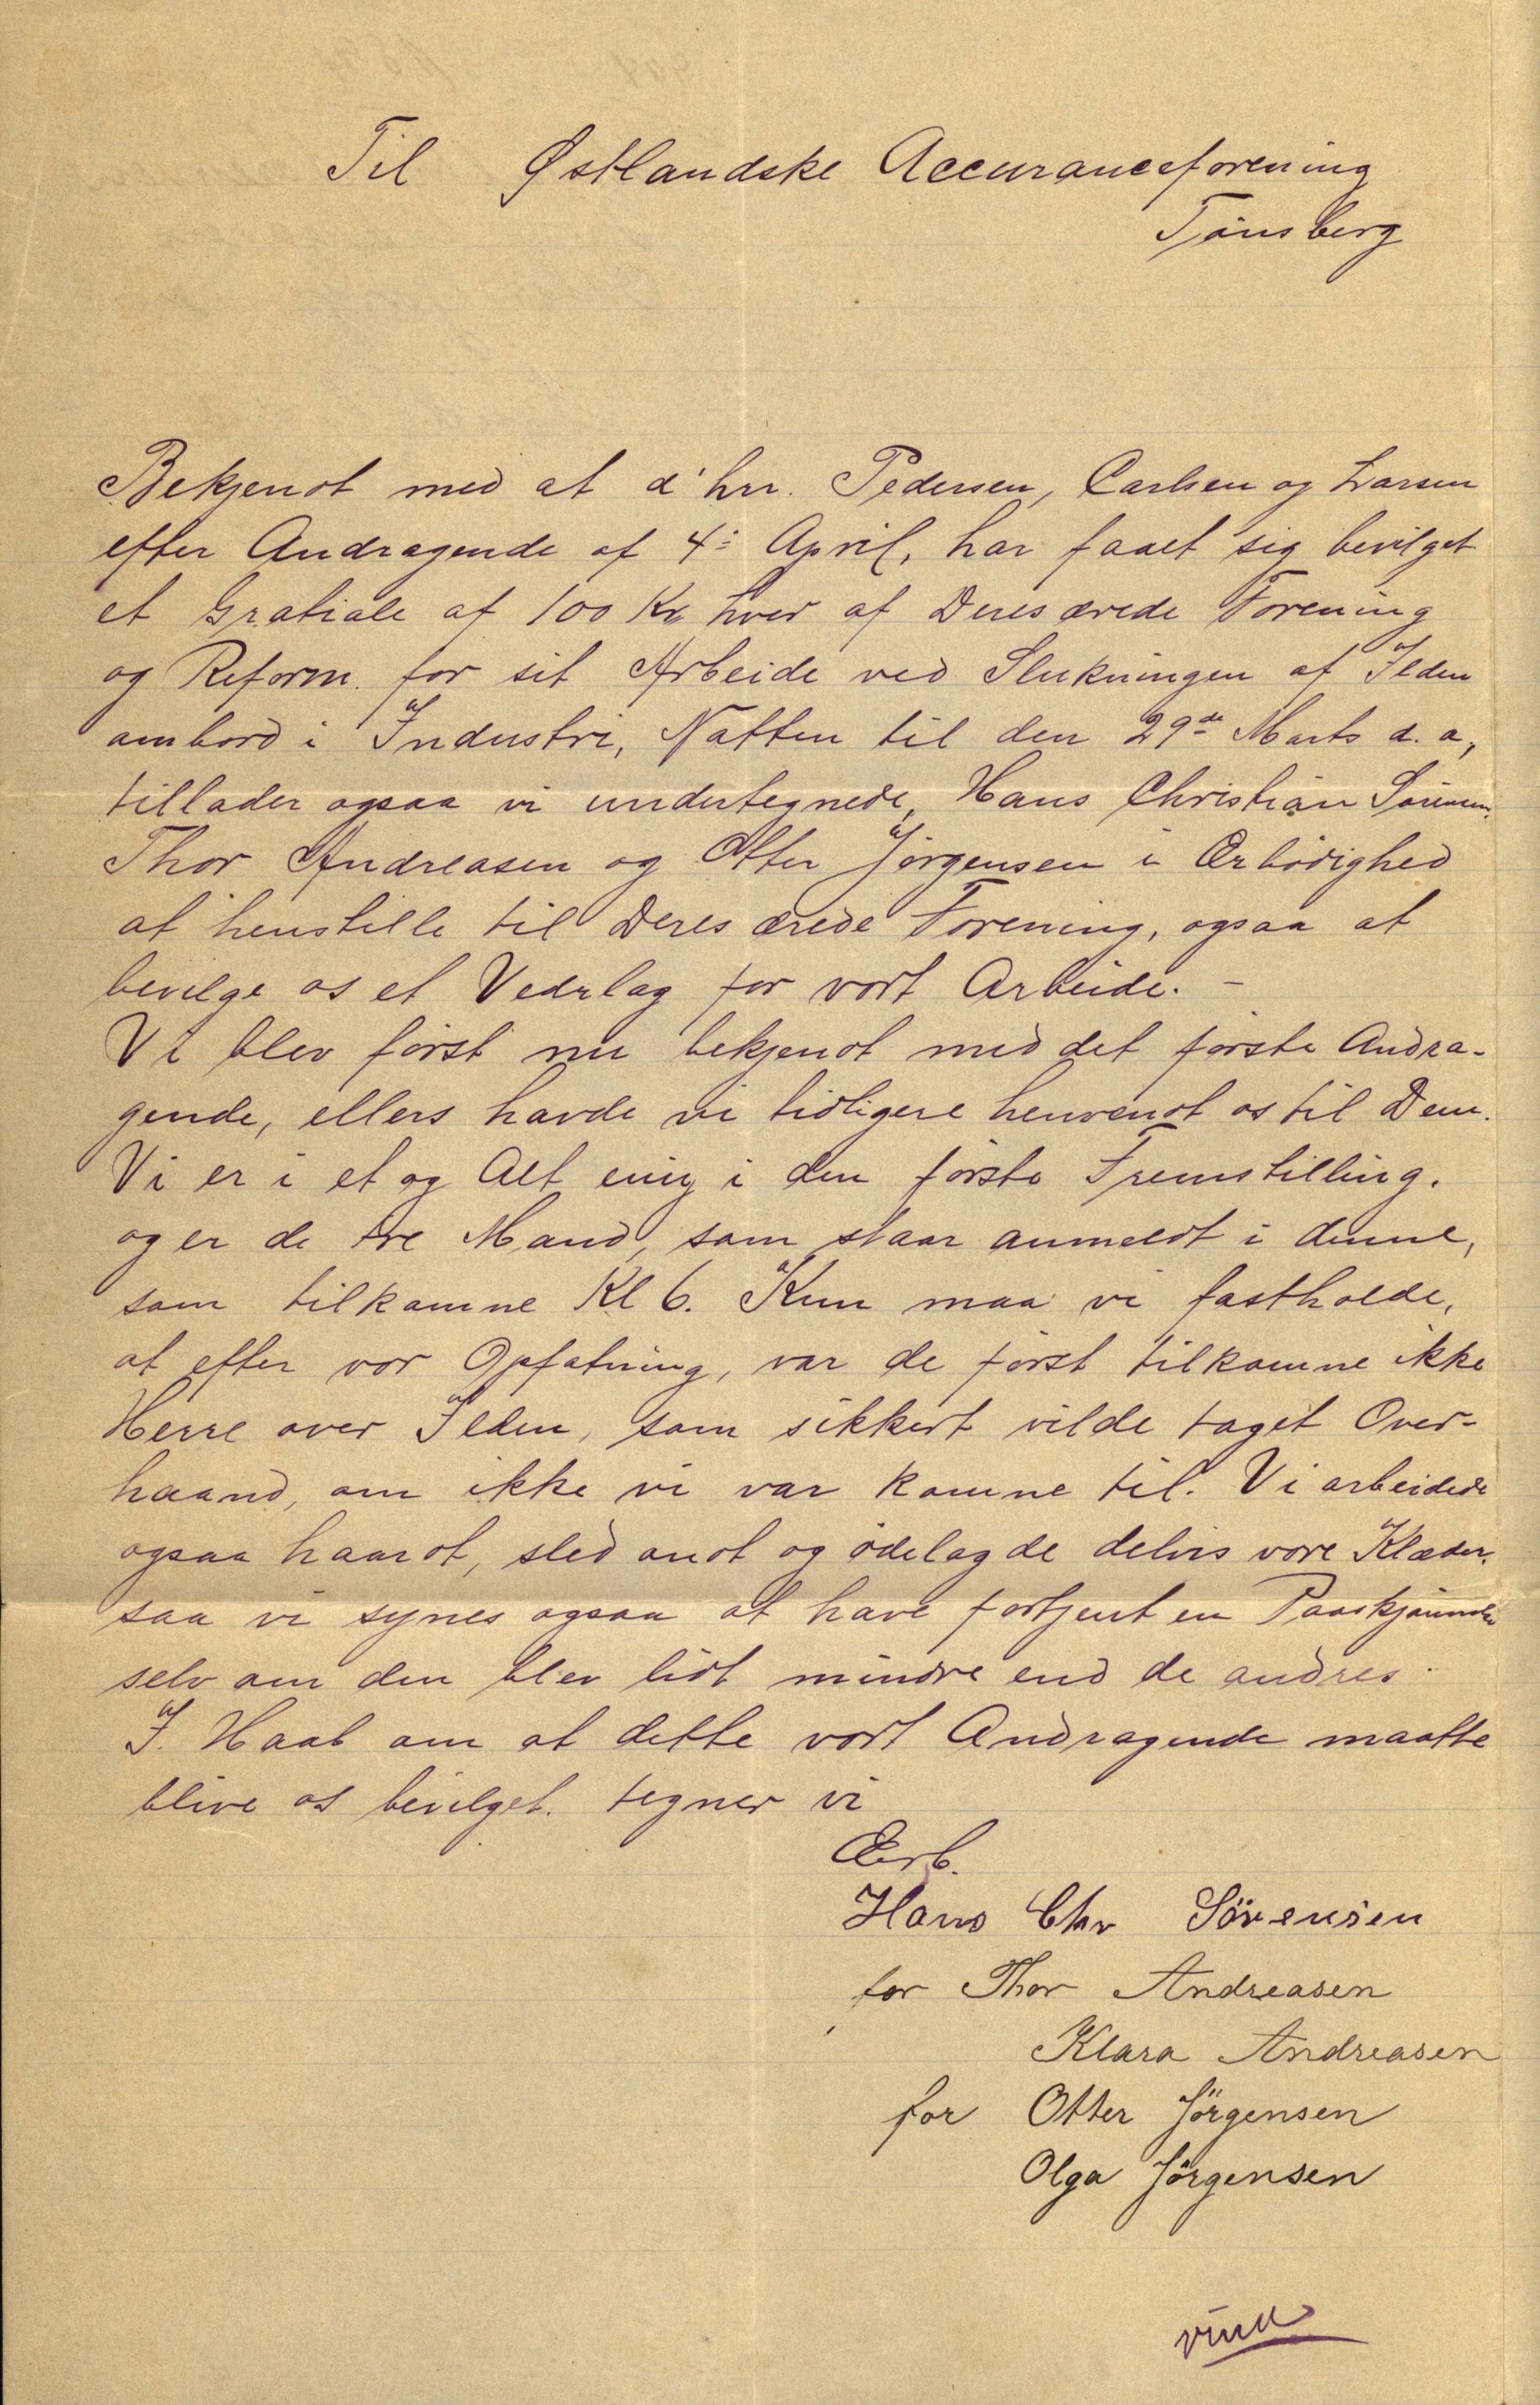 Til Østlandske Accuranceforening
Tönsberg
Bekjendt med at d'hrr. Pedersen, Carlsen og Larsen
efter Andragende af 4: April, har faaet sig bevilget
et Gratiale af 100 Kr hver af Deres ærede Forening
og Reform. for sit Arbeide ved Slukningen af Ilden
ombord i Industri, Natten til den 29de Marts d. a,
tillader ogsaa vi undertegnede, Hans Christian Sörensen,
Thor Andreasen og Otter Jörgensen i Ærbödighed
at henstille til Deres ærede Forening, ogsaa at
bevilge os et Vedrlag for vort Arbeide. –
Vi blev först nu bekjendt med det förste Andra-
gende, ellers havde vi tidligere henvendt os til Dem.
Vi er i et og Alt enig i den förste Fremstilling.
og er de tre Mand, som staar anmeldt i denne,
som tilkomne Kl 6. Kun maa vi fastholde,
at efter vor Opfatning, var de först tilkomne ikke
Herre over Ilden, som sikkert vilde taget Over-
haand, om ikke vi var komne til. Vi arbeidede
ogsaa haardt, sled ondt og ödelagde delvis vore Klæder,
saa vi synes ogsaa at have fortjent en Paaskjönnelse
selv om den blev lidt mindre end de andres.
I. Haab om at dette vort Andragende maatte
blive os bevilget. tegner vi
Ærb.
Hans Chr Sörensen
for Thor Andreasen
Klara Andreasen
for Otter Jörgensen
Olga Jörgensen
vend